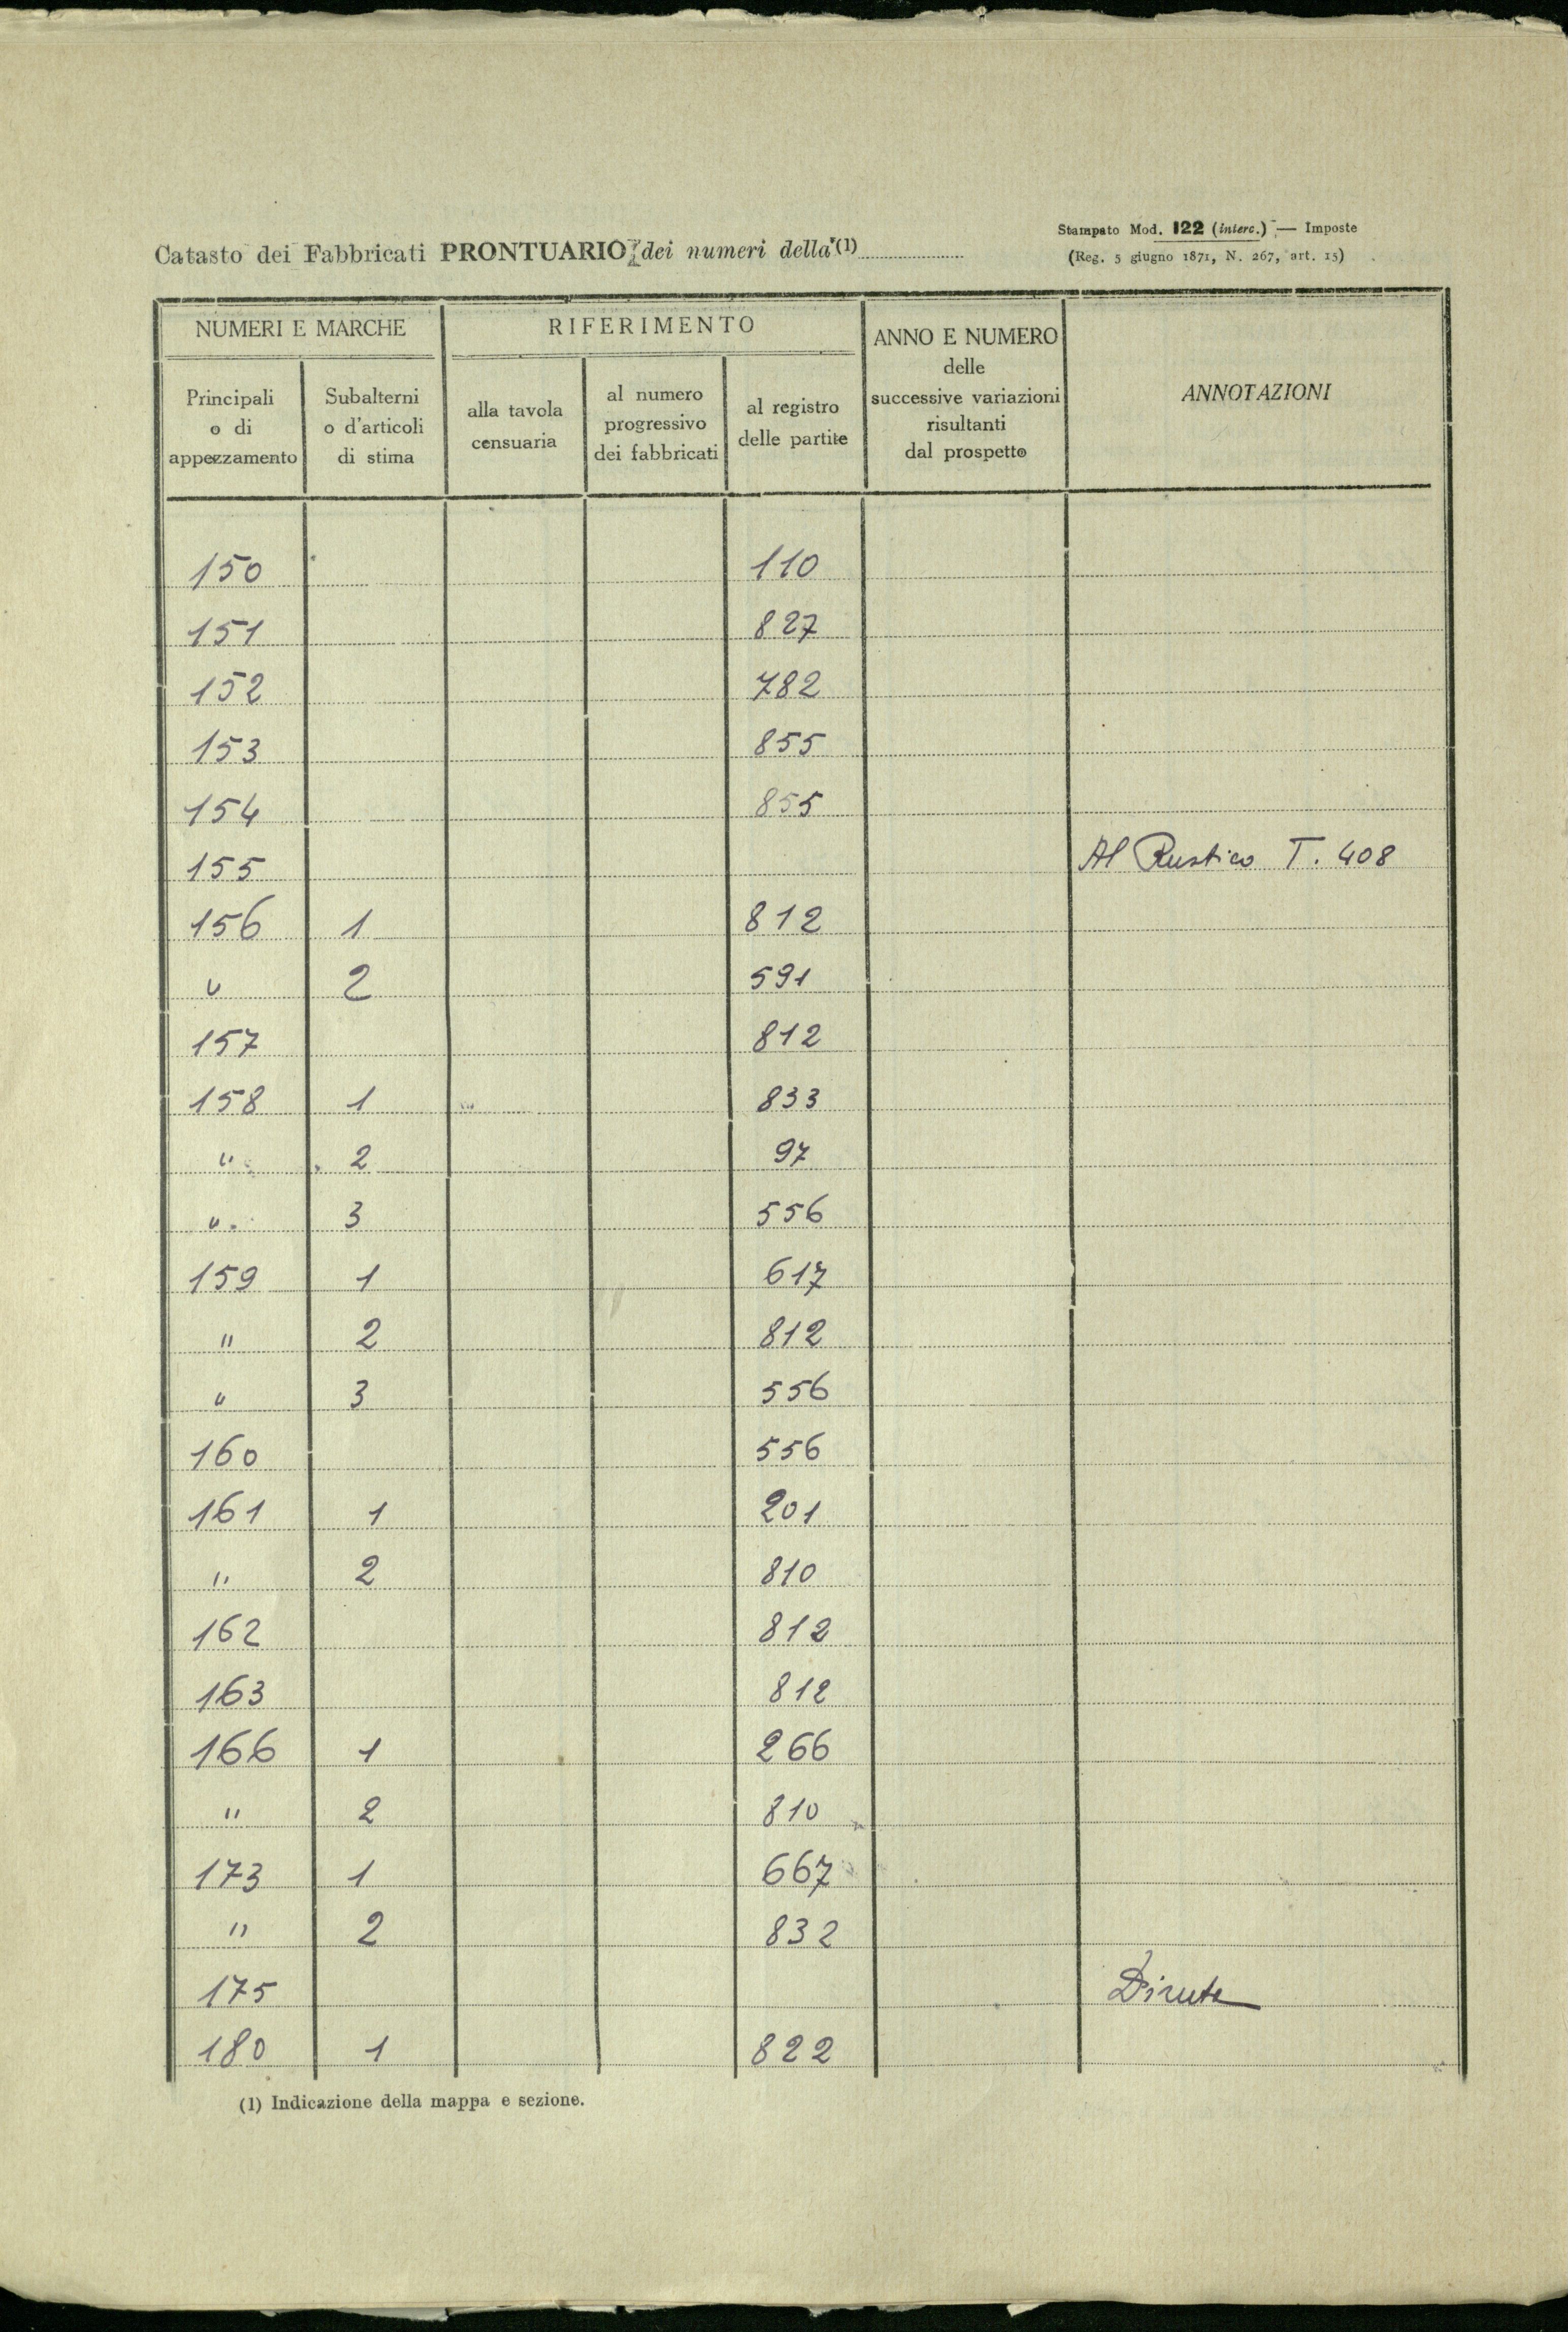 Catasto dei Fabbricati PRONTUARIO dei numeri della (1)
Stampato Mod. 122 (interc.) — Imposte
(Reg. 5 giugno 1871, N. 267, art. 15)
NUMERI E MARCHE
RIFERIMENTO
ANNO E NUMERO
delle
successive variazioni
risultanti
dal prospetto
ANNOTAZIONI
Principali
o di
appezzamento
Subalterni
o d'articoli
di stima
alla tavola
censuaria
al numero
progressivo
dei fabbricati
al registro
delle partite
150 110
151 827
152 782
153 855
154 855
155 Al Rustico T. 408
156 1 812
" 2 591
157 812
158 1 833
" 2 97
" 3 556
159 1 617
" 2 812
" 3 556
160 556
161 1 201
" 2 810
162 812
163 812
166 1 266
" 2 810
173 1 667
" 2 832
175 Diruta
180 1 822
(1) Indicazione della mappa e sezione.